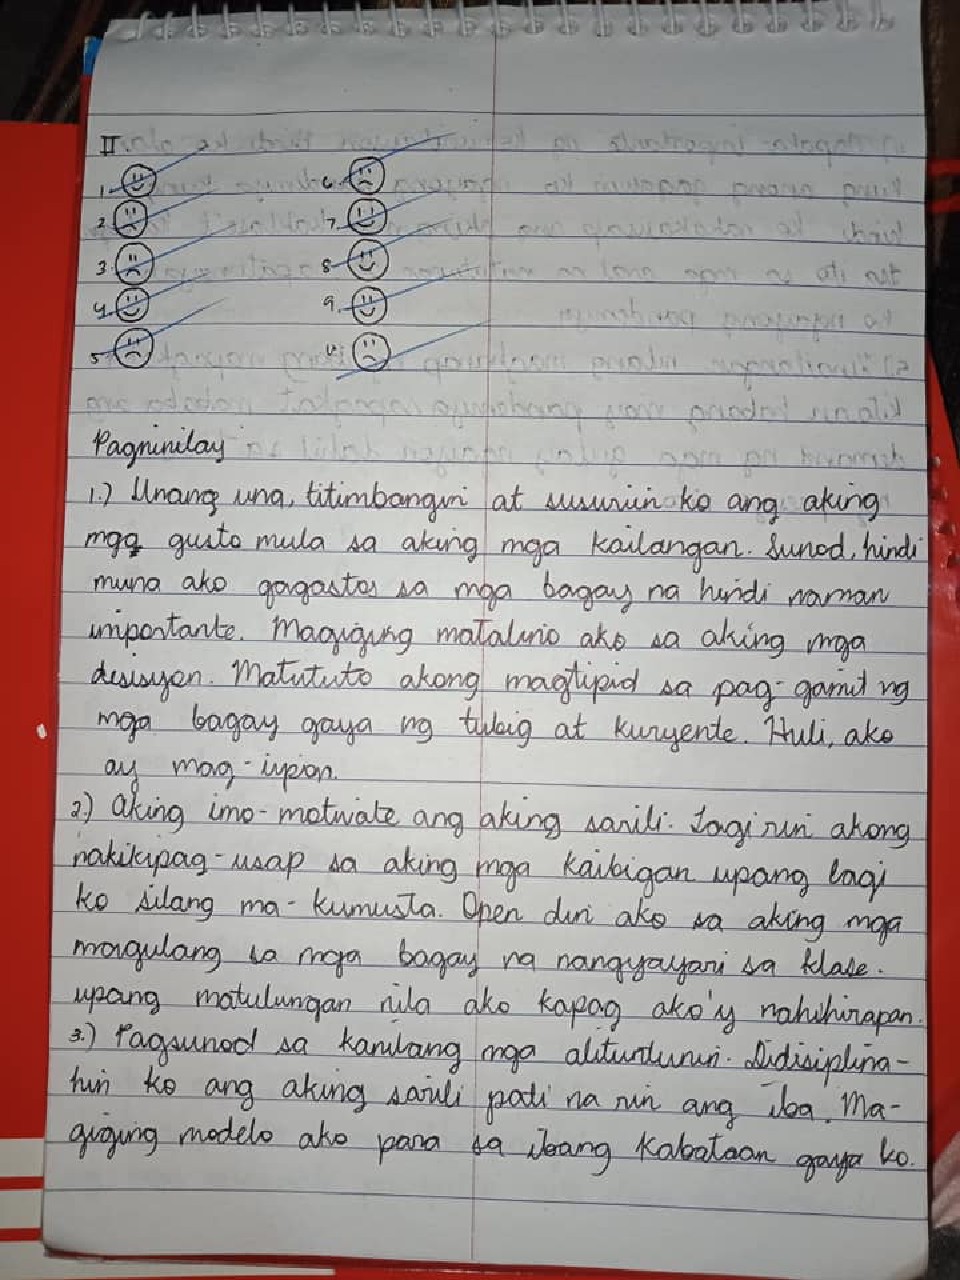 II.
1. 6.
2. 7.
3. 8.
4. 9.
5. 10.
Pagninilay
1.) Unang una, titimbangin at susuriin ko ang aking
mga gusto mula sa aking mga kailangan. Sunod, hindi
muna ako gagastos sa mga bagay na hindi naman
importante. Magiging matalino ako sa aking mga
desisyon. Matututo akong magtipid sa pag-gamit ng
mga bagay gaya ng tubig at kuryente. Huli, ako
ay mag-iipon.
2.) Aking imo-motivate ang aking sarili. Lagi rin akong
nakikipag-usap sa aking mga kaibigan upang lagi
ko silang ma-kumusta. Open din ako sa aking mga
magulang sa mga bagay na nangyayari sa klase.
upang matulungan nila ako kapag ako'y nahihirapan.
3.) Pagsunod sa kanilang mga alituntunin. Didisiplina-
hin ko ang aking sarili pati na rin ang iba. Ma-
giging modelo ako para sa ibang kabataan gaya ko.